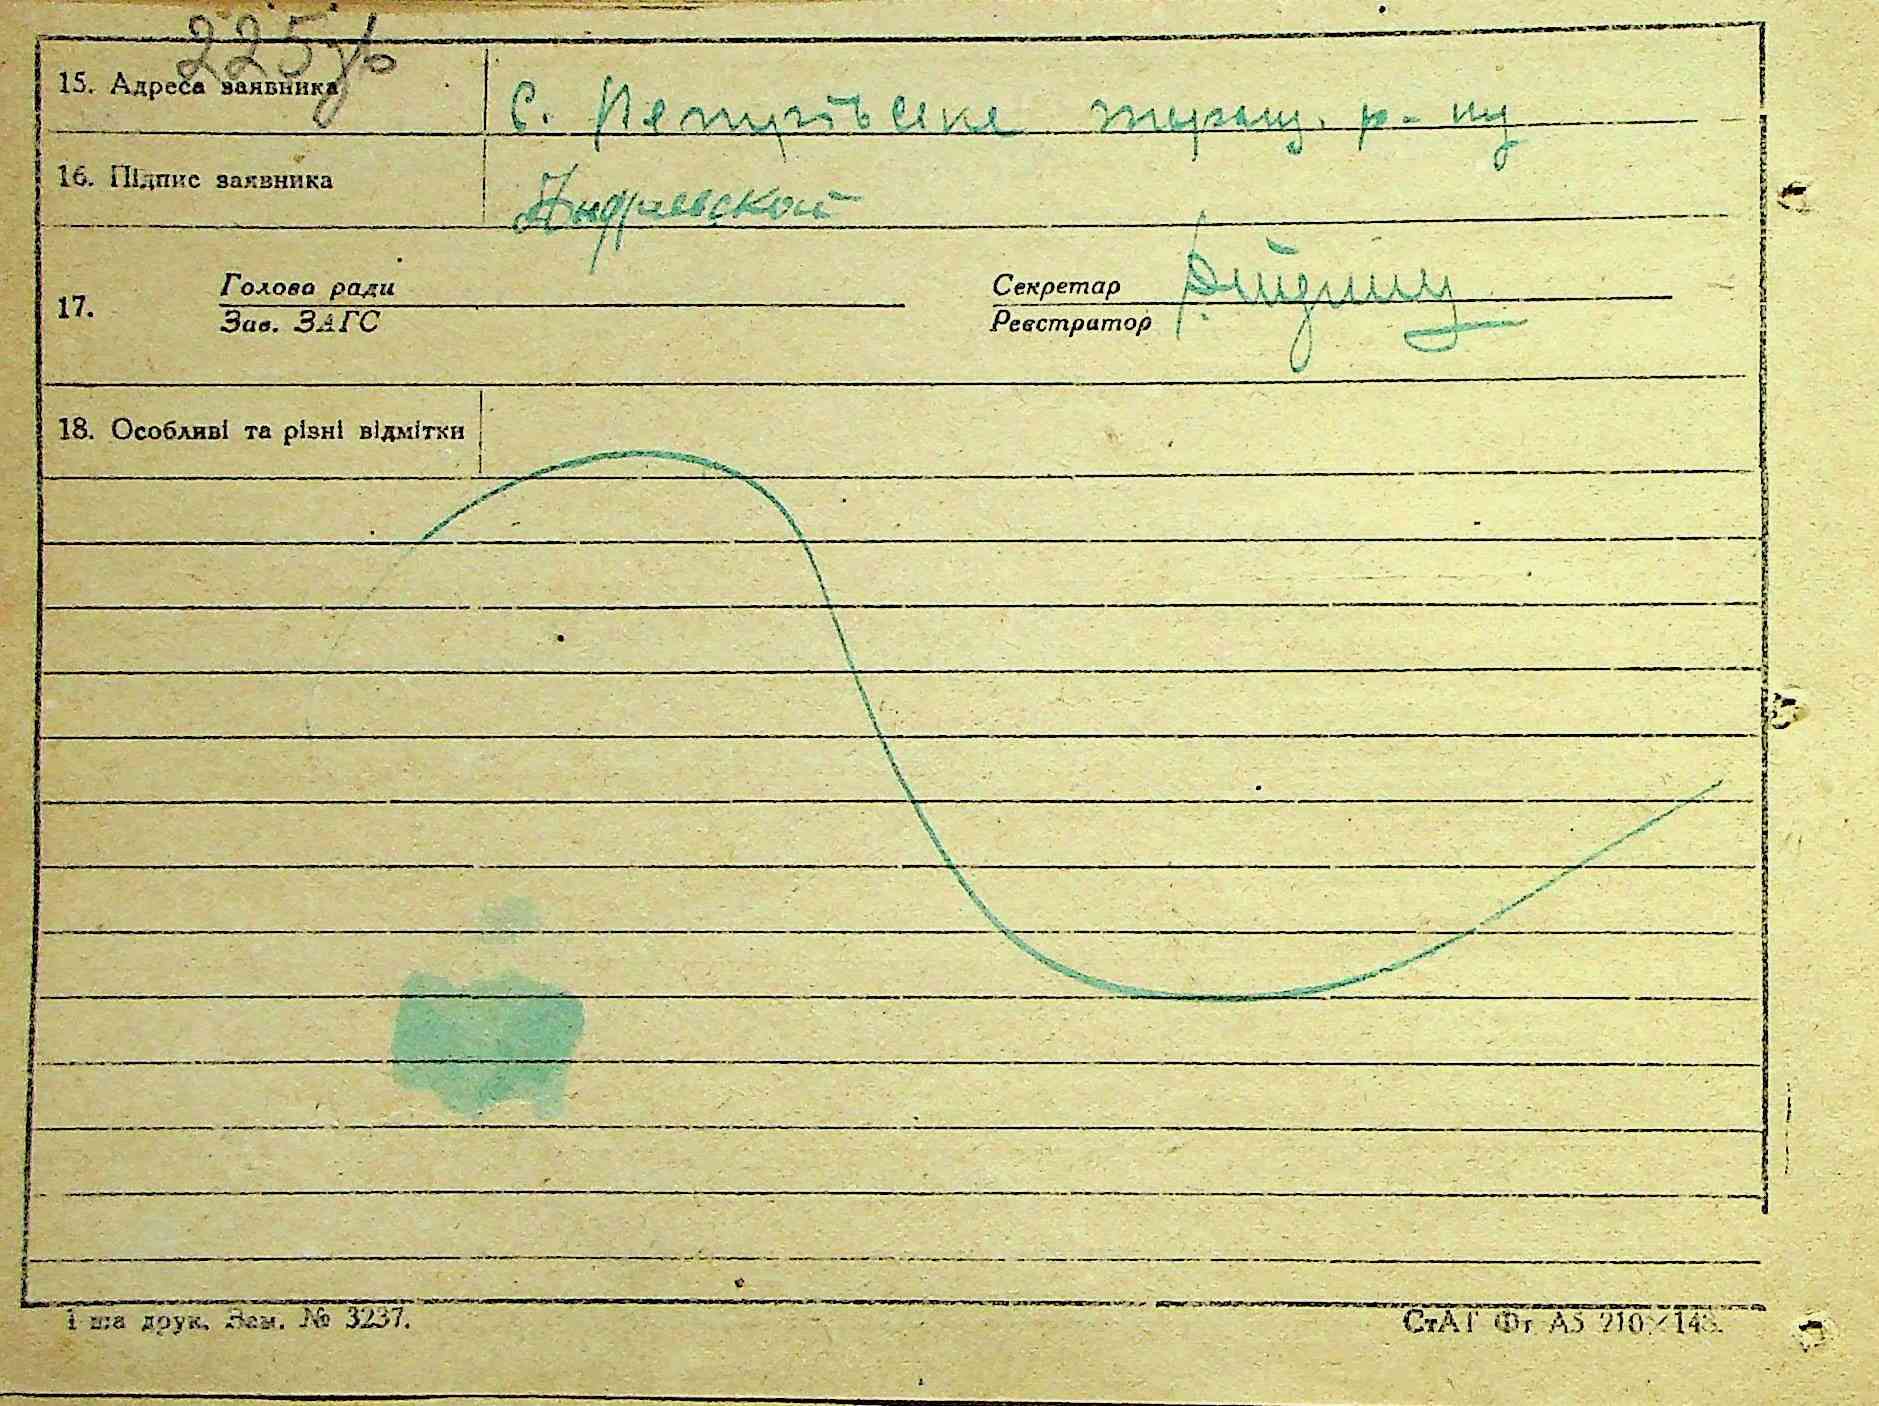 225 зв
15. Адреса заявника
с. Петрівське р-ну
16. Підпис заявника
Андриевской
17.
Голова ради
Зав. ЗАГС
Секретар
Реєстратор
18. Особливі та різні відмітки
1 ша друк. Зам. № 3237.
СтАТ Фт А5 210×148.